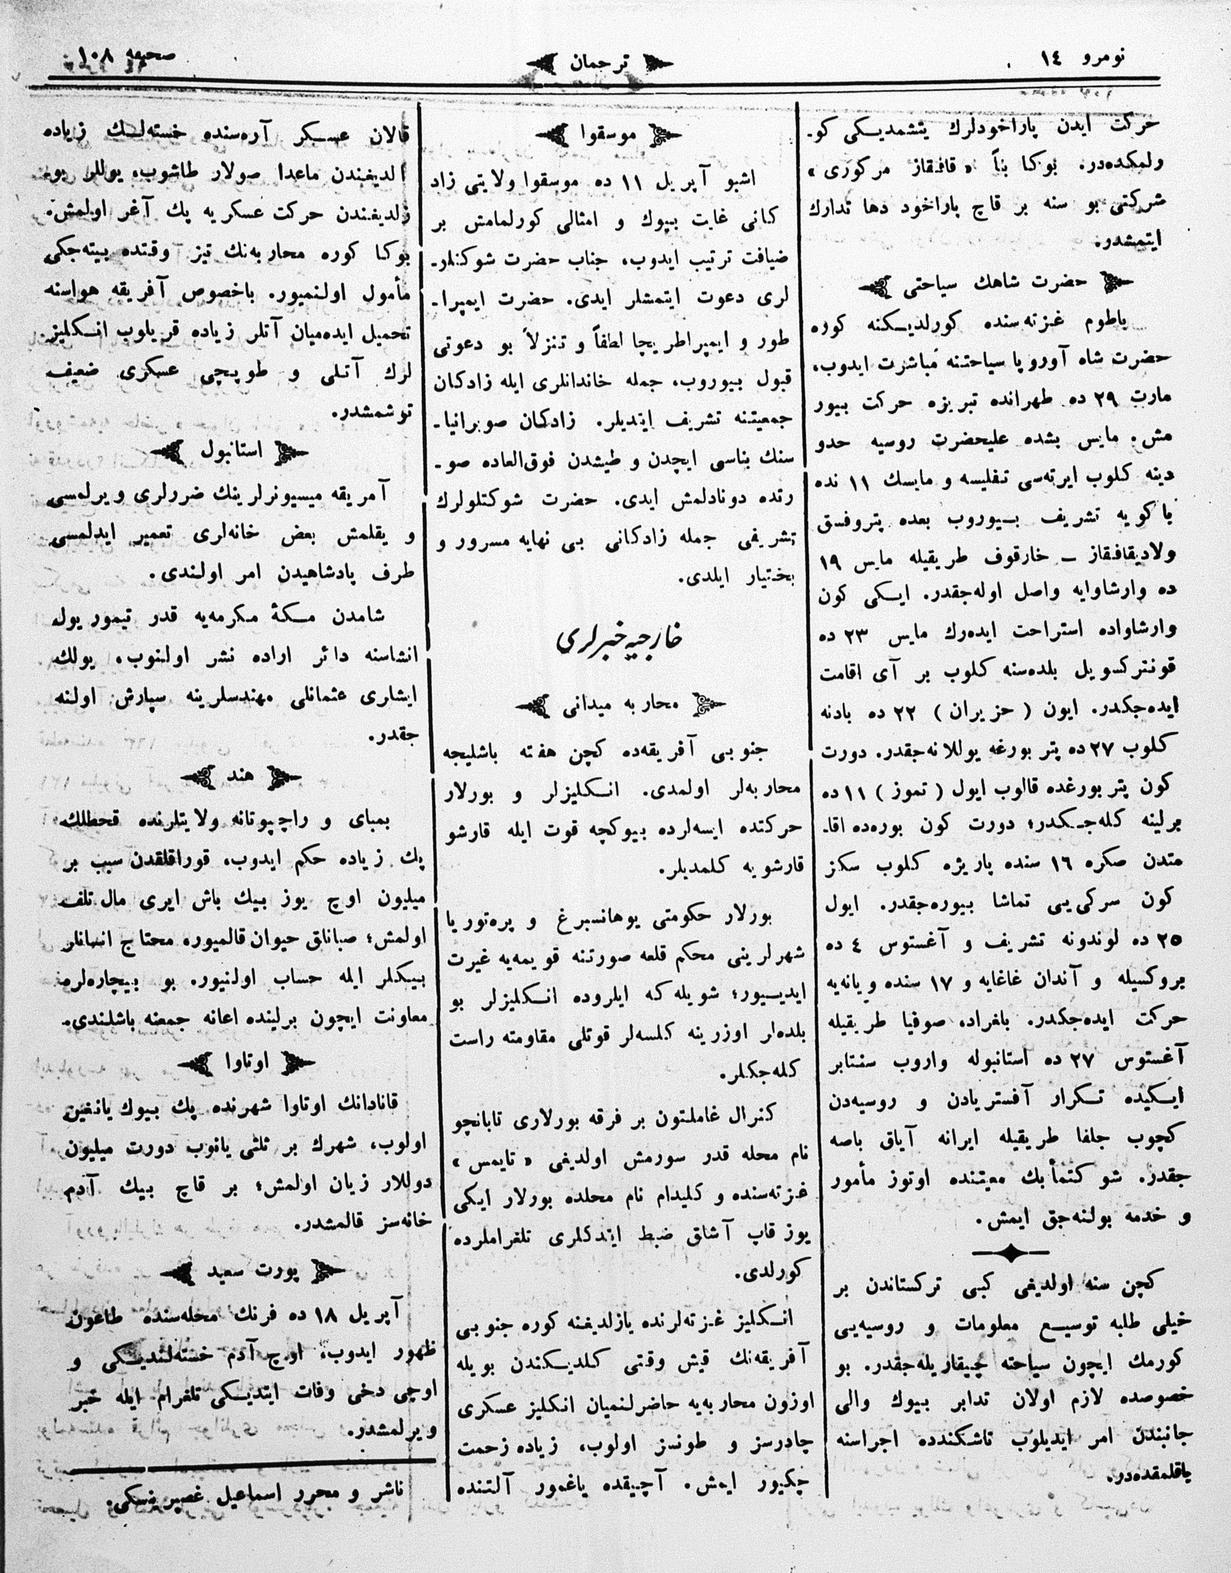 نومرو ١٤
ترجمان
صحیفه ١٠٨
حركت ایدن پاراخودلرك یتشمدیكی كو-
رلمكده‌در. بوكا بناً «قافقاز مركوری»
شركتی بو سنه بر قاچ پاراخود دها تدارك
ایتمشدر.
حضرت شاهك سیاحتی
باطوم غزته‌سنده كورلدیكنه كوره
حضرت شاه آوروپا سیاحتنه مباشرت ایدوب،
مارت ٢٩ ده طهرانده تبریزه حركت بیور
مش. مایس بشده علیحضرت روسیه حدو
دینه كلوب ایرته‌سی تفلیسه و مایسك ١١ نده
باكویه تشریف بیوروب بعده پتروفسق
ولادیقافقاز – خارقوف طریقیله مایس ١٩
ده وارشاوایه واصل اوله‌جقدر. ایكی كون
وارشاواده استراحت ایده‌رك مایس ٢٣ ده
قونتركسویل بلده‌سنه كلوب بر آی اقامت
ایده‌جكدر. ایون (حزیران) ٢٢ ده بادنه
كلوب ٢٧ ده پتربورغه یوللانه‌جقدر. دورت
كون پتربورغده قالوب ایول (تموز) ١١ ده
برلینه كله‌جكدر؛ دورت كون بوره‌ده اقا-
متدن صكره ١٦ سنده پاریژه كلوب سكز
كون سركی‌یی تماشا بیوره‌جقدر. ایول
٢٥ ده لوندونه تشریف و آغستوس ٤ ده
بروكسیله و آندان غاغایه و ١٧ سنده ویانه‌یه
حركت ایده‌جكدر. بلغراد، صوفیا طریقیله
آغستوس ٢٧ ده استانبوله واروب سنتابر
ایكیده تكرار آفستریادن و روسیه‌دن
كچوب جلفا طریقیله ایرانه آیاق باصه
جقدر. شوكتمأبك معیتنده اوتوز مأمور
و خدمه بولنه‌جق ایمش.
كچن سنه اولدیغی كبی تركستاندن بر
خیلی طلبه توسیع معلومات و روسیه‌یی
كورمك ایچون سیاحته چیقاریله‌جقدر. بو
خصوصده لازم اولان تدابر بیوك والی
جانبندن امر ایدیلوب تاشكندده اجراسنه
باقلمقده‌در.
موسقوا
اشبو آپریل ١١ ده موسقوا ولایتی زاد
كانی غایت بیوك و امثالی كورلمامش بر
ضیافت ترتیب ایدوب، جناب حضرت شوكتلر-
لری دعوت ایتمشلر ایدی. حضرت ایمپرا-
طور و ایمپراطریچا لطفاً و تنزلاً بو دعوتی
قبول بیوروب، جمله خاندانلری ایله زادكان
جمعیتنه تشریف ایتدیلر. زادكان صوبرانیا-
سنك بناسی ایچدن و طیشدن فوق‌العاده صو-
رتده دونادلمش ایدی. حضرت شوكتلولرك
تشریفی جمله زادكانی بی نهایه مسرور و
بختیار ایلدی.
خارجیه خبرلری
محاربه میدانی
جنوبی آفریقه‌ده كچن هفته باشلیجه
محاربه‌لر اولمدی. انكلیزلر و بورلار
حركتده ایسه‌لرده بیوكچه قوت ایله قارشو
قارشویه كلمدیلر.
بورلار حكومتی یوهانسبرغ و پره‌توریا
شهرلرینی محكم قلعه صورتنه قویمه‌یه غیرت
ایدییور؛ شویله‌كه ایلروده انكلیزلر بو
بلده‌لر اوزرینه كلسه‌لر قوتلی مقاومته راست
كله‌جكلر.
كنرال غاملتون بر فرقه بورلاری تابانچو
نام محله قدر سورمش اولدیغی «تایمس»
غزته‌سنده و كلیدام نام محلده بورلار ایكی
یوز قاپ آشاق ضبط ایتدكلری تلغراملرده
كورلدی.
انكلیز غزته‌لرنده یازلدیغنه كوره جنوبی
آفریقه‌نك قیش وقتی كلدیكندن بویله
اوزون محاربه‌یه حاضرلنمیان انكلیز عسكری
چادرسز و طونسز اولوب، زیاده زحمت
چكیور ایمش. آچیقده یاغمور آلتنده
قالان عسكر آره‌سنده خسته‌لك زیاده
لدیغندن ماعدا صولار طاشوب، یوللر بو
زلدیغندن حركت عسكریه پك آغر اولمش.
بوكا كوره محاربه‌نك تیز وقتده بیته‌جكی
مأمول اولنمیور. باخصوص آفریقه هواسنه
تحمیل ایده‌میان آتلر زیاده قریلوب انكلیز
لرك آتلی و طوپچی عسكری ضعیف
توشمشدر.
استانبول
آمریقه میسیونرلرینك ضررلری ویرلمسی
و یقلمش بعض خانه‌لری تعمیر ایدلمسی
طرف پادشاهیدن امر اولندی.
شامدن مكۀ مكرمه‌یه قدر تیمور یول
انشاسنه دائر اراده نشر اولنوب، یولك
ایشاری عثمانلی مهندسلرینه سپارش اولنه
جقدر.
هند
بمبای و راچپوتانه ولایتلرنده قحطلك
پك زیاده حكم ایدوب، قوراقلقدن سبب بر
میلیون اوچ یوز بیك باش ایری مال تلف
اولمش؛ صبانلق حیوان قالمیور. محتاج انسانلر
بیكلر ایله حساب اولنیور. بو بیچاره‌لره
معاونت ایچون برلینده اعانه جمعنه باشلندی.
اوتاوا
قانادانك اوتاوا شهرنده پك بیوك یانغین
اولوب، شهرك بر ثلثی یانوب دورت میلیون
دوللار زیان اولمش؛ بر قاچ بیك آدم
خانه‌سز قالمشدر.
پورت سعید
آپریل ١٨ ده فرنك محله‌سنده طاعون
ظهور ایدوب، اوچ آدم خسته‌لندیكی و
اوچی دخی وفات ایتدیكی تلغرام ایله خبر
ویرلمشدر.
ناشر و محرر اسماعیل غصپرنسكی.